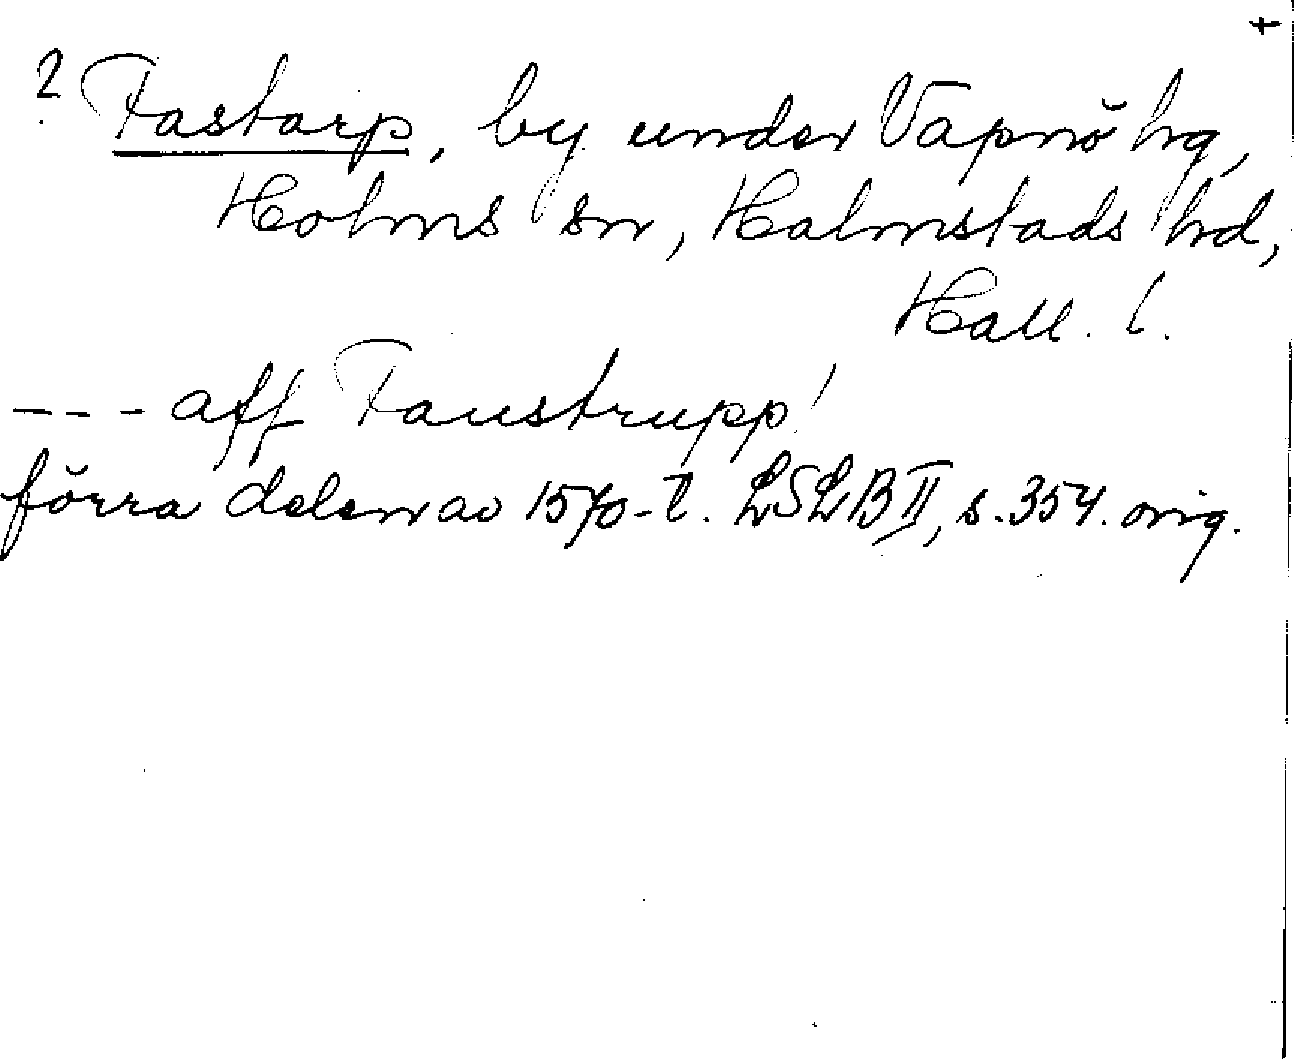 +
? Fastarp, by under Vapnö hg,
Holms sn, Halmstads hd,
Hall. l.
--- aff Faustrupp!
förra delen av 1570-t. LSLB II, s. 354. orig.